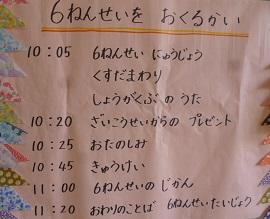 6ねんせいを おくるかい
10:05 6ねんせい にゅうじょう
くすだまわり
しょうがくぶ の うた
10:20 ざいこうせいからの プレゼント
10:25 おたのしみ
10:45 きゅうけい
11:00 6ねんせいの じかん
11:20 おわりのことば 6ねんせいたいじょう